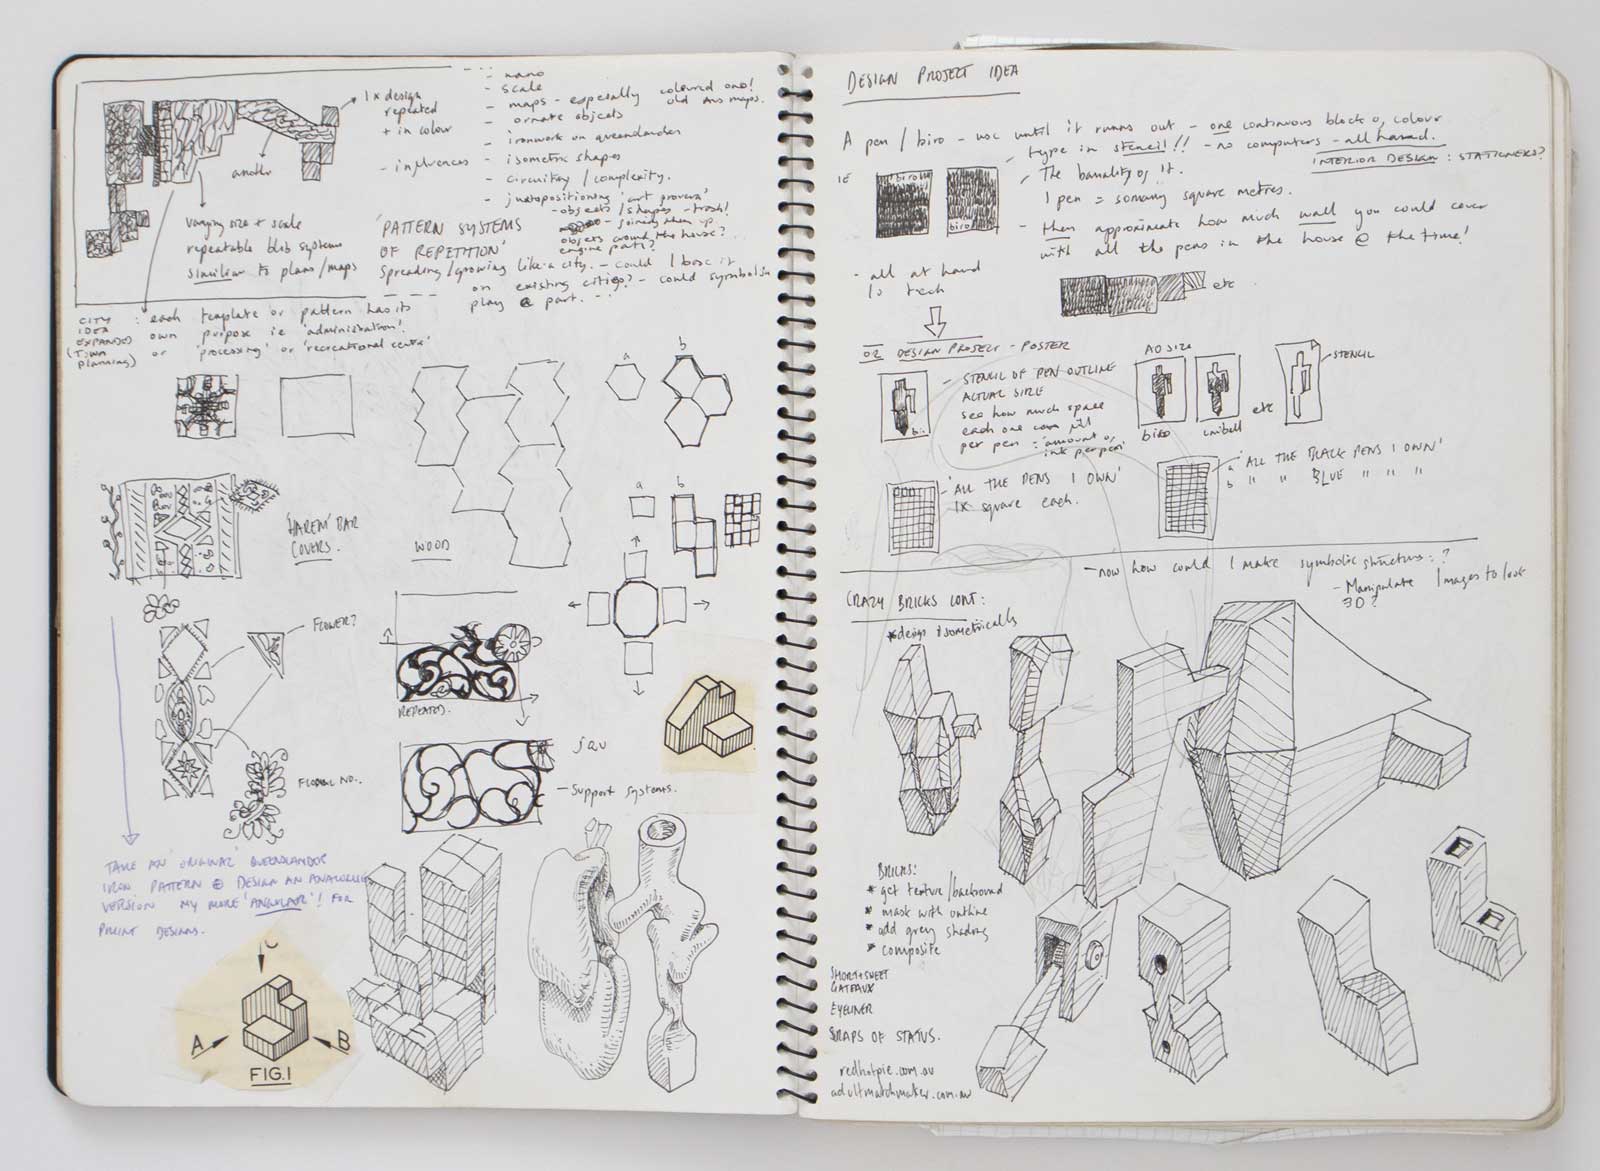 1x design
repeated
+ in colour
- influences
another
varying size + scale
repeatable blob systems
similar to plans/maps
- nano
- scale
- maps - especially coloured ones!
old Aus maps.
- ornate objects
- ironwork on queenslanders
- isometric shapes
- circuitry / complexity.
- juxtapositioning 'art
- objects / shapes - trash!
- joining them up
objects around the house?
engine parts?
'PATTERN SYSTEMS
OF REPETITION'
spreading/growing like a city. - could I base it
on existing cities? - could symbolism
play a part. - -
CITY
IDEA
EXPANDED
(TOWN
planning)
: each template or pattern has its
own purpose ie 'administration'
or 'processing' or 'recreational centre'
a
b
'HAREM' BAR
COVERS.
WOOD
a
b
FLOWER?
REPEATED.
FLORAL NO..
- support systems.
TAKE AN 'ORIGINAL' QUEENSLANDER
IRON PATTERN + DESIGN AN ANALOGUE
VERSION MY MORE 'ANGULAR'! FOR
PRINT DESIGNS.
C
A
B
FIG.1
DESIGN PROJECT IDEA
A pen / biro - use until it runs out - one continuous block of colour
type in stencil!! - no computers - all hand.
INTERIOR DESIGN : STATIONERS?
IE
biro
biro
- The banality of it.
1 pen = so many square metres.
- then approximate how much wall you could cover
with all the pens in the house @ the time!
- all at hand
lo tech
etc
OR DESIGN PROJECT - POSTER
- STENCIL OF PEN OUTLINE
ACTUAL SIZE
see how much space
each one can fill
per pen : 'amount of
ink per pen'
A0 SIZE
biro
uniball
etc
- STENCIL
- 'ALL THE PENS I OWN'
1x square each.
a 'ALL THE BLACK PENS I OWN'
b " " BLUE " " "
- now how could I make symbolic structures : ?
- Manipulate images to look
3D?
CRAZY BRICKS CONT:
* design isometrically
BRICKS:
* get texture/background
* mask with outline
* add grey shading
* composite
SHORT+SWEET
GATEAUX
EYELINER
SCRAPS OF STATUS.
redhotpie.com.au
adultmatchmaker.com.au